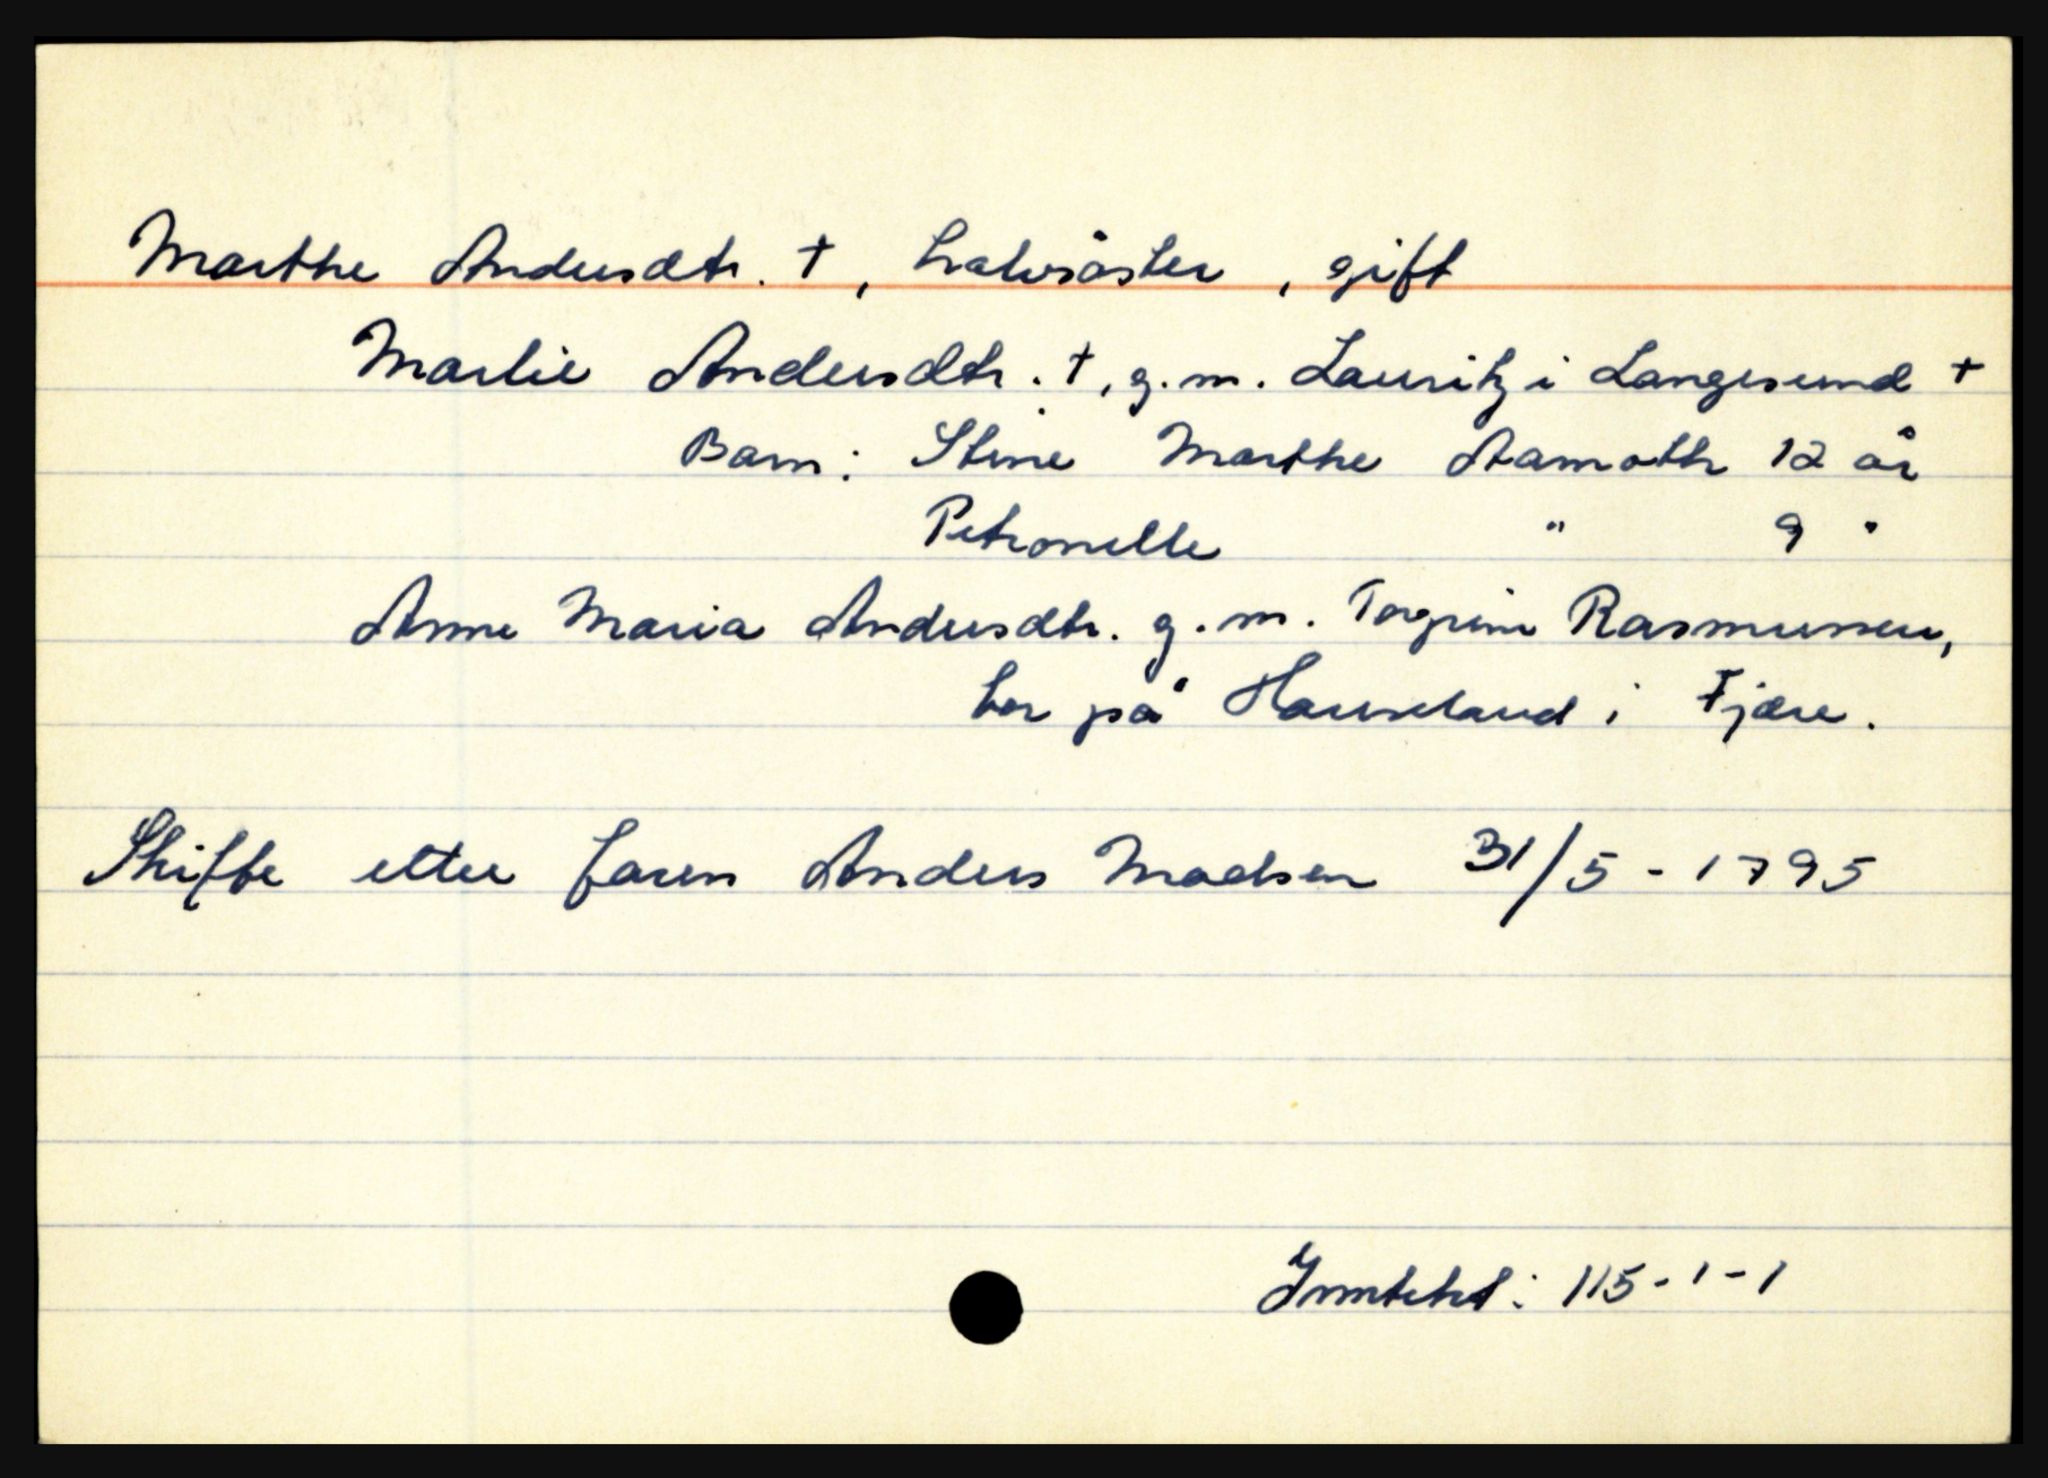 Marthe Andersdtr. †, halvsøster, gift
Marlie Andersdtr. †, g.m. Lauritz i Langesund †
Barn: Stine Marthe Aamoth 12 år
Petronelle " 9 "
Anne Maria Andersdtr. g.m. Torgrim Rasmussen,
bor på Hauseland i Fjære.
Skifte etter faren Anders Madsen 31/5 - 1795
Inntekt: 115-1-1